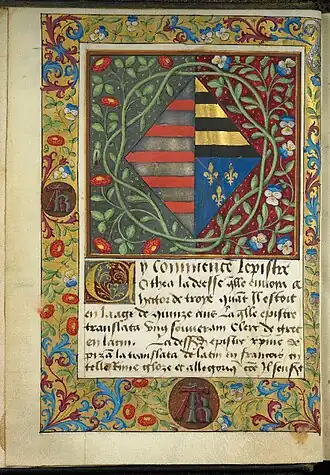 Cy commence lepistre
Othea la deesse que envoia a
hector de troye quant il estoit
en laage de quinze ans La qlle epistre
translata ung souverain Clerc de grec
en latin. epistre xpine de
piza la translata de latin en francois en
telle Rime gloze et allegorie